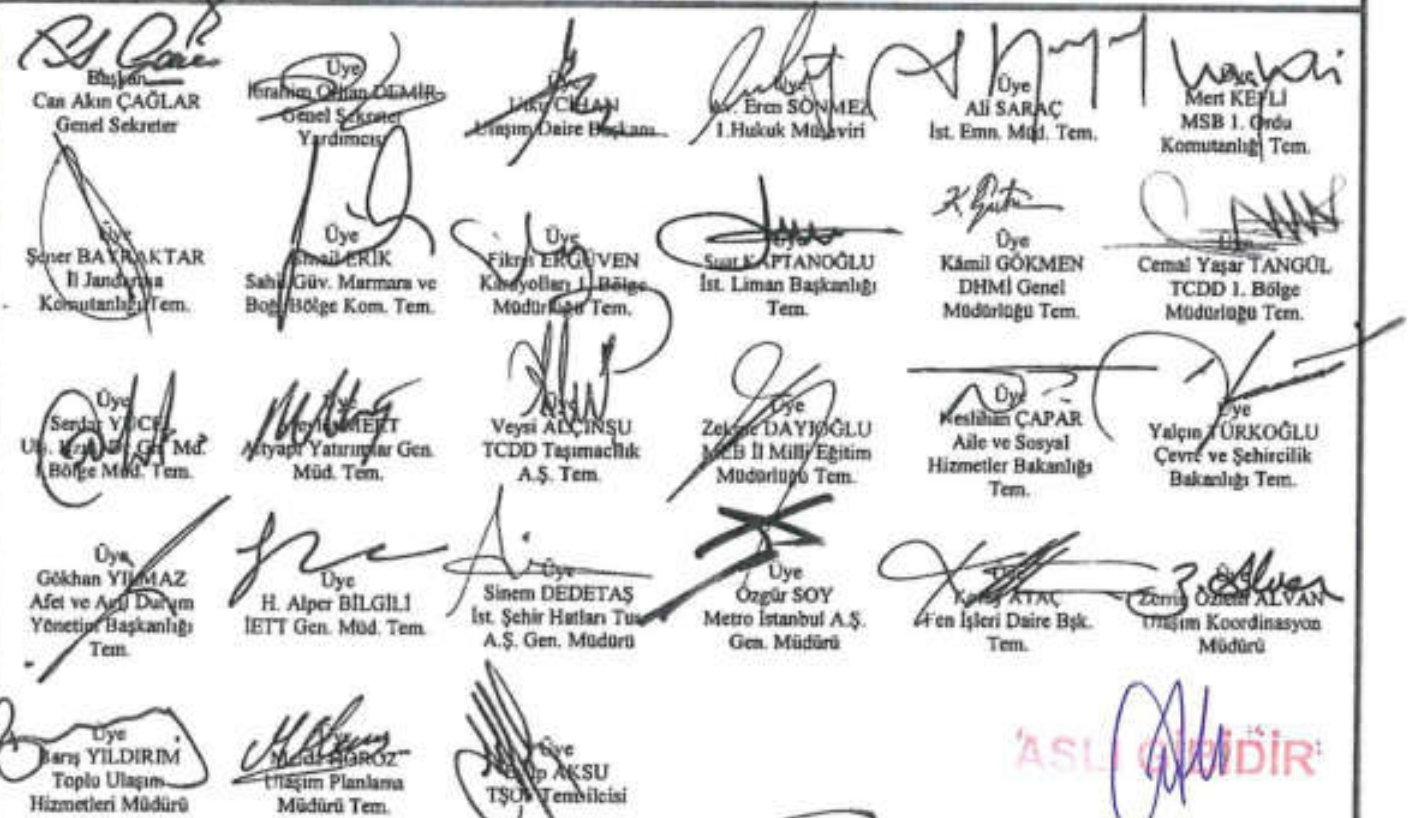 Başkan
Can Akın ÇAĞLAR
Genel Sekreter
Üye
İbrahim Orhan DEMİR
Genel Sekreter
Yardımcısı
Üye
Utku CİHAN
Ulaşım Daire Başkanı
Üye
Av. Eren SÖNMEZ
1.Hukuk Müşaviri
Üye
Ali SARAÇ
İst. Emn. Müd. Tem.
Üye
Mert KEFLİ
MSB 1. Ordu
Komutanlığı Tem.
Üye
Şener BAYRAKTAR
İl Jandarma
Komutanlığı Tem.
Üye
İsmail ERİK
Sahil Güv. Marmara ve
Boğ. Bölge Kom. Tem.
Üye
Fikret ERGÜVEN
Karayolları 1. Bölge
Müdürlüğü Tem.
Üye
Suat KAPTANOĞLU
İst. Liman Başkanlığı
Tem.
Üye
Kâmil GÖKMEN
DHMİ Genel
Müdürlüğü Tem.
Üye
Cemal Yaşar TANGÜL
TCDD 1. Bölge
Müdürlüğü Tem.
Üye
Serdar YÜCEL
Md.
1.Bölge Müd. Tem.
Üye
MERT
Altyapı Yatırımlar Gen.
Müd. Tem.
Üye
Veysi ALÇINSU
TCDD Taşımacılık
A.Ş. Tem.
Üye
DAYIOĞLU
MEB İl Milli Eğitim
Müdürlüğü Tem.
Üye
Neslihan ÇAPAR
Aile ve Sosyal
Hizmetler Bakanlığı
Tem.
Üye
Yalçın TÜRKOĞLU
Çevre ve Şehircilik
Bakanlığı Tem.
Üye
Gökhan YILMAZ
Afet ve Acil Durum
Yönetim Başkanlığı
Tem.
Üye
H. Alper BİLGİLİ
İETT Gen. Müd. Tem.
Üye
Sinem DEDETAŞ
İst. Şehir Hatları Tur.
A.Ş. Gen. Müdürü
Üye
Özgür SOY
Metro İstanbul A.Ş.
Gen. Müdürü
Üye
ATAÇ
Fen İşleri Daire Bşk.
Tem.
Üye
Özlem ALVAN
Ulaşım Koordinasyon
Müdürü
Üye
Barış YILDIRIM
Toplu Ulaşım
Hizmetleri Müdürü
Üye
HOROZ
Ulaşım Planlama
Müdürü Tem.
Üye
Eyüp AKSU
TŞOF Temsilcisi
ASLI GİBİDİR